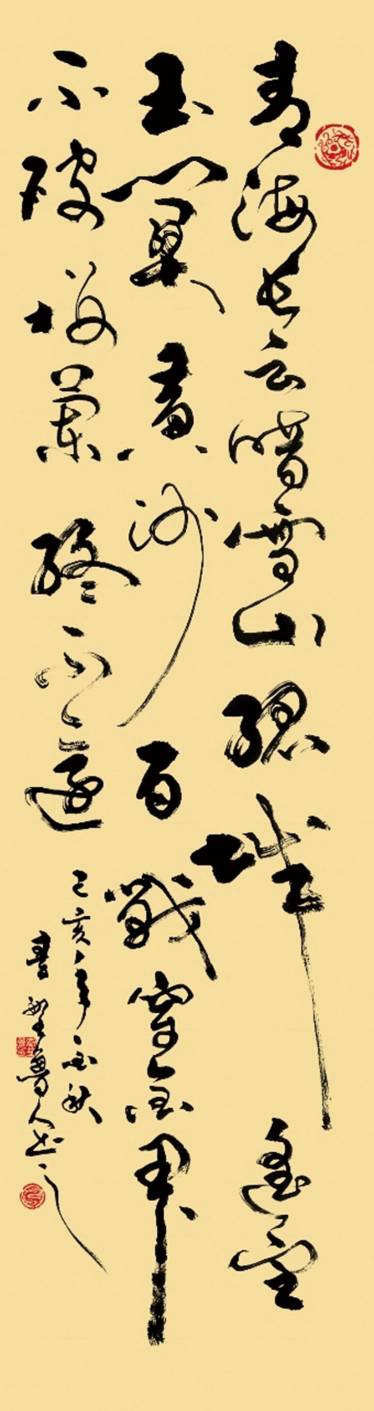 青海长云暗雪山孤城遥望
玉门关黄沙百戰穿金甲
不破楼蘭終不還
己亥年金秋
人书之